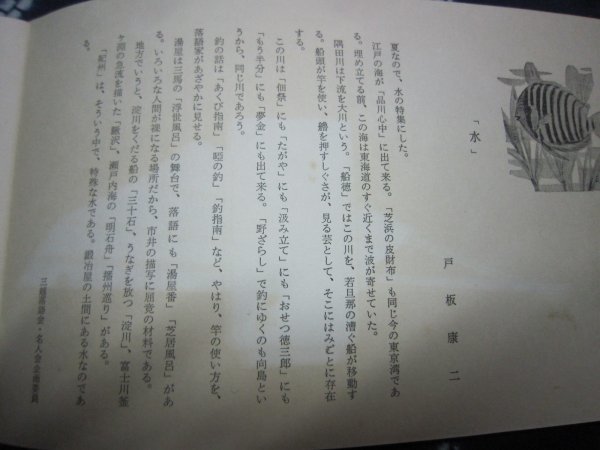 「水」
戸板康二
夏なので、水の特集にした。
江戸の海が「品川心中」に出て来る。「芝浜の皮財布」も同じ今の東京湾であ
る。埋め立てる前、この海は東海道のすぐ近くまで波が寄せていた。
隅田川は下流を大川という。「船徳」ではこの川を、若旦那の漕ぐ船が移動す
る。船頭が竿を使い、艪を押すしぐさが、見る芸として、そこにはみごとに存在
する。
この川は「佃祭」にも「たがや」にも「汲み立て」にも「おせつ徳三郎」にも
「もう半分」にも「夢金」にも出て来る。「野ざらし」で釣にゆくのも向島とい
うから、同じ川であろう。
釣の話は「あくび指南」「唖の釣」「釣指南」など、やはり、竿の使い方を、
落語家があざやかに見せる。
湯屋は三馬の「浮世風呂」の舞台で、落語にも「湯屋番」「芝居風呂」があ
る。いろいろな人間が裸になる場所だから、市井の描写に屈竟の材料である。
地方でいうと、淀川をくだる船の「三十石」、うなぎを放つ「淀川」、富士川釜
ヶ淵の急流を描いた「鰍沢」、瀬戸内海の「明石舟」「播州巡り」がある。
「紀州」は、そういう中で、特殊な水である。鍛冶屋の土間にある水なのであ
る。
三越落語会・名人会企画委員